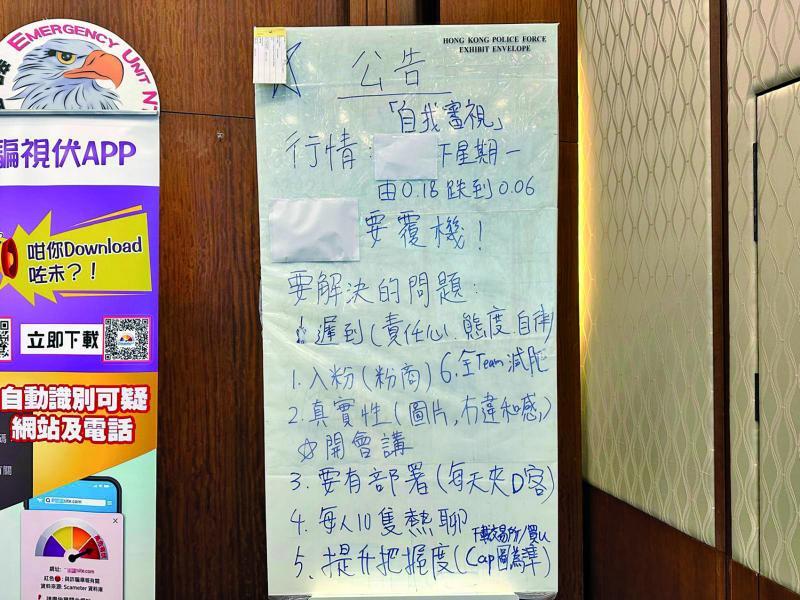 EMERGENCY UNIT N
騙視伏APP
咁你Download
咗未？！
立即下載
自動識別可疑
網站及電話
site.com
網址: site.com
資料來源: Scameter 資料庫
HONG KONG POLICE FORCE
EXHIBIT ENVELOPE
公告
「自我審視」
行情： 下星期一
由0.18跌到0.06
要覆機！
要解決的問題：
遲到（責任心.態度.自律）
1. 入粉（粉商）
6. 全Team減肥
2. 真實性（圖片,冇違和感,）
開會講
3. 要有部署（每天夾D客）
4. 每人10隻熱聊
下載交易所/買U
5. 提升把握度（Cap圖為準）